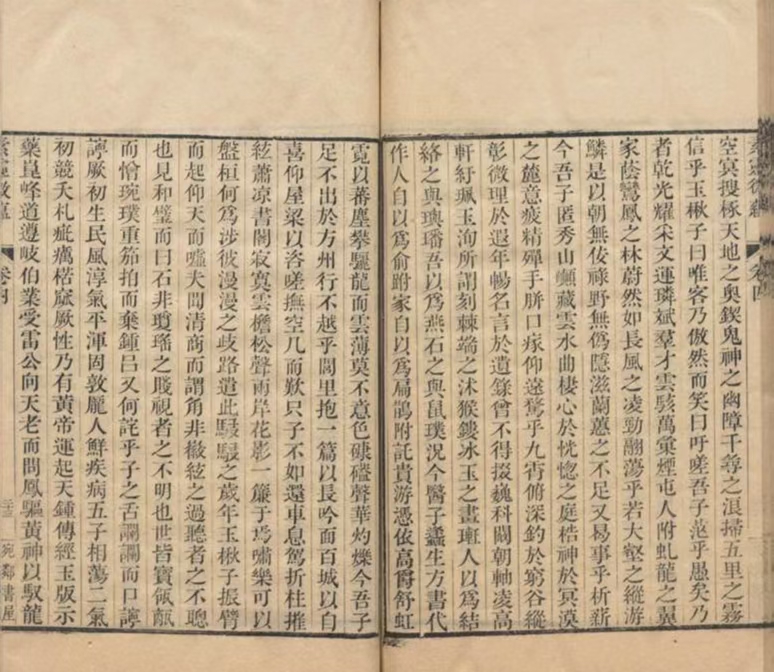 空冥搜椓天地之奧鍥鬼神之幽障千尋之浪掃五里之霧
信乎玉楸子曰唯客乃傲然而笑曰吁嗟吾子范乎愚矣乃
者乾光耀采文運璘斌羣才雲駭萬彙煙屯人附虬龍之翼
家蔭鸞鳳之林蔚然如長風之凌勁翮蕩乎若大壑之縱游
鱗是以朝無伎祿野無僞隱滋蘭蕙之不足又曷事乎析薪
今吾子匿秀山巔藏雲水曲棲心於恍惚之庭梏神於冥漠
之麓意疲精殫手胼口瘃仰遠騖乎九霄俯深釣於窮谷縱
彰微理於遐年暢名言於遺籙曾不得掇巍科闢朝軸凌高
軒紆珮玉洵所謂刻棘端之沐猴鏤冰玉之畫璉人以爲結
綠之與璵璠吾以爲燕石之與鼠璞况今醫子蠭生方書代
作人自以爲俞跗家自以爲扁鵲附託貴游憑依高爵舒虹
霓以蕃塵攀驪龍而雲薄莫不意色磕聲華灼爍今吾子
足不出於方州行不越乎閭里抱一篇以長吟而百城以自
喜仰屋梁以咨嗟撫空几而歎只子不如還車息駕折柱摧
絃蕭凉書閣寂寞雲檐松聲兩岸花影一簾于焉嘯樂可以
盤桓何爲涉彼漫漫之歧路遣此駸駸之歲年玉楸子振臂
而起仰天而噓夫聞清商而謂角非徽絃之過聽者之不聰
也見和璧而曰石非瓊瑤之賤視者之不明也世皆寶瓴甋
而憎琬璞重笳拍而棄鍾呂又何詫乎子之舌讕讕而口諄
諄厥初生民風淳氣平渾固敦龐人鮮疾病五子相蕩二氣
初競夭札疵癘楛窳厥性乃有黃帝運起天鍾傳經玉版示
藥崑峰道遵岐伯業受雷公向天老而問鳳驅黃神以馭龍
卷四
宛鄰書屋